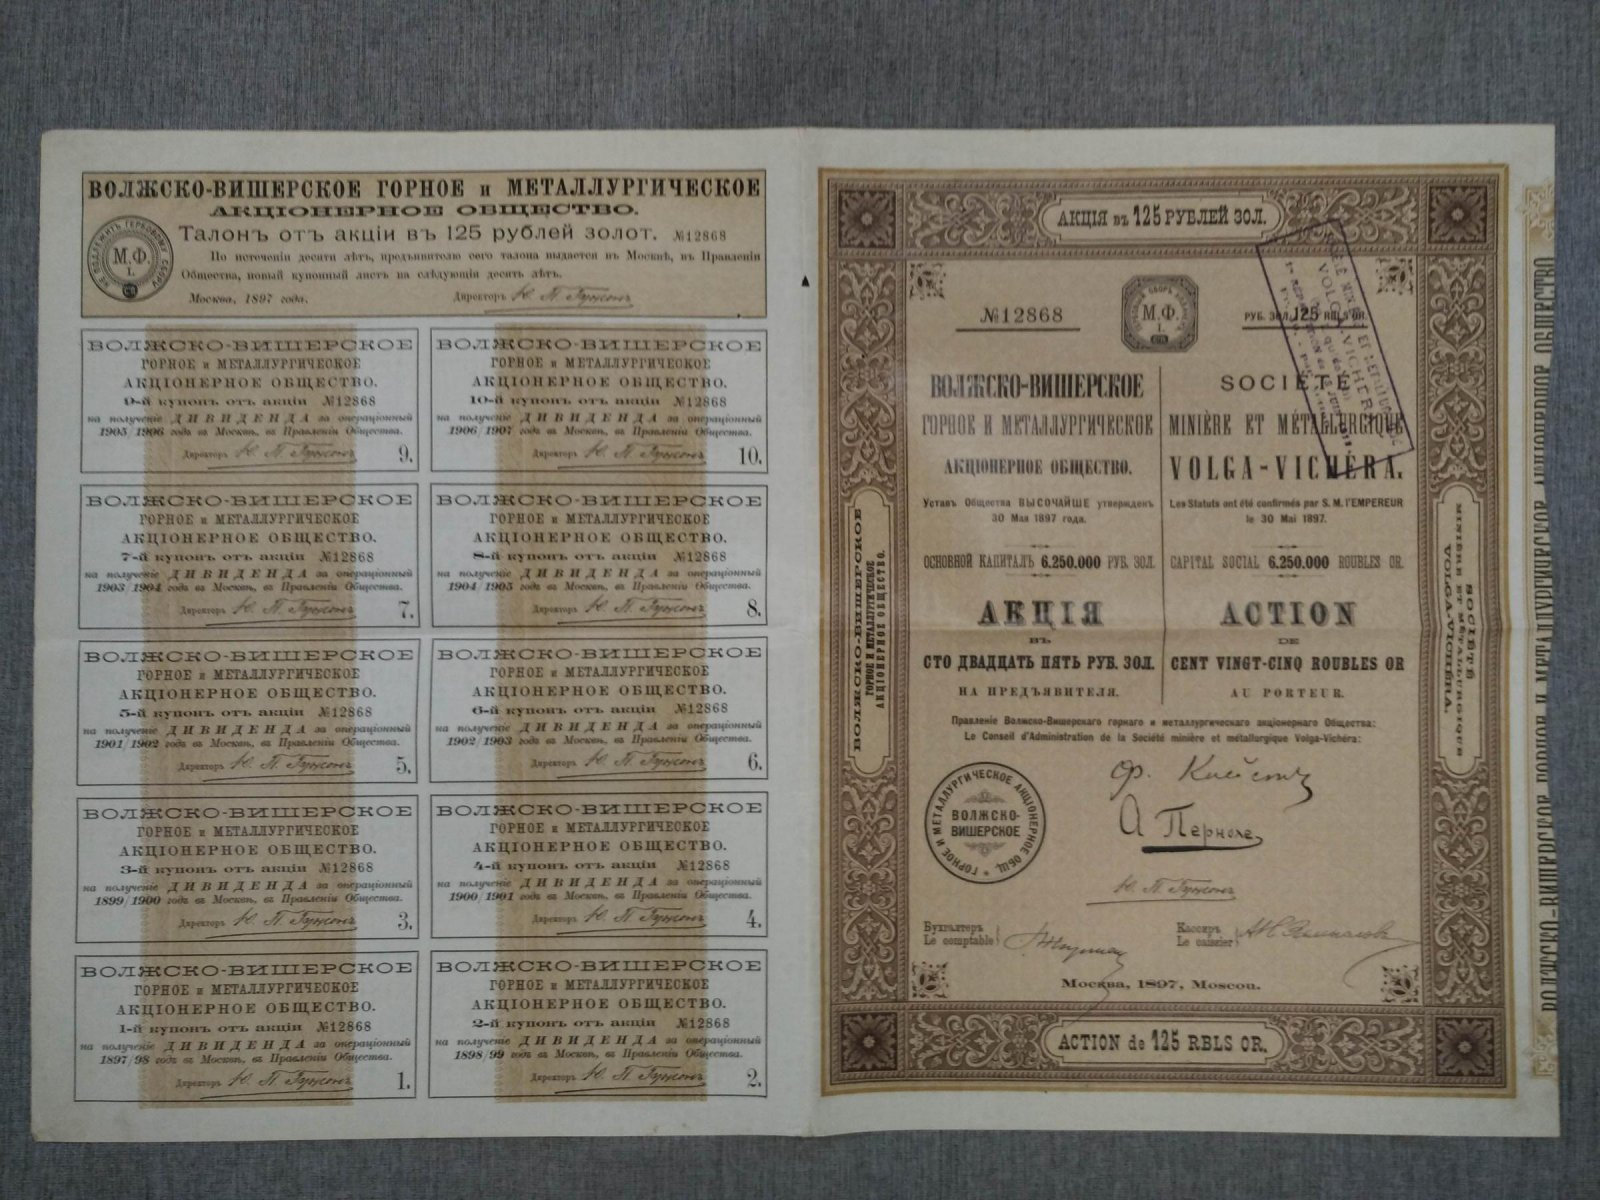 ВОЛЖСКО-ВИШЕРСКОЕ ГОРНОЕ и МЕТАЛЛУРГИЧЕСКОЕ
АКЦІОНЕРНОЕ ОБЩЕСТВО.
Талонъ отъ акціи въ 125 рублей золот. №12868
По истеченіи десяти лѣтъ, предъявителю сего талона выдается въ Москвѣ, въ Правленіи
Общества, новый купонный листъ на слѣдующія десять лѣтъ.
Москва, 1897 года. Директоръ Ю. П. Гужонъ
НЕ ПОДЛЕЖИТЪ ГЕРБОВОМУ СБОРУ
М.Ф.
I.
ВОЛЖСКО-ВИШЕРСКОЕ
ГОРНОЕ и МЕТАЛЛУРГИЧЕСКОЕ
АКЦІОНЕРНОЕ ОБЩЕСТВО.
9-й купонъ отъ акціи №12868
на полученіе ДИВИДЕНДА за операціонный
1905/1906 годъ въ Москвѣ, въ Правленіи Общества.
Директоръ Ю. П. Гужонъ 9.
ВОЛЖСКО-ВИШЕРСКОЕ
ГОРНОЕ и МЕТАЛЛУРГИЧЕСКОЕ
АКЦІОНЕРНОЕ ОБЩЕСТВО.
10-й купонъ отъ акціи №12868
на полученіе ДИВИДЕНДА за операціонный
1906/1907 годъ въ Москвѣ, въ Правленіи Общества.
Директоръ Ю. П. Гужонъ 10.
ВОЛЖСКО-ВИШЕРСКОЕ
ГОРНОЕ и МЕТАЛЛУРГИЧЕСКОЕ
АКЦІОНЕРНОЕ ОБЩЕСТВО.
7-й купонъ отъ акціи №12868
на полученіе ДИВИДЕНДА за операціонный
1903/1904 годъ въ Москвѣ, въ Правленіи Общества.
Директоръ Ю. П. Гужонъ 7.
ВОЛЖСКО-ВИШЕРСКОЕ
ГОРНОЕ и МЕТАЛЛУРГИЧЕСКОЕ
АКЦІОНЕРНОЕ ОБЩЕСТВО.
8-й купонъ отъ акціи №12868
на полученіе ДИВИДЕНДА за операціонный
1904/1905 годъ въ Москвѣ, въ Правленіи Общества.
Директоръ Ю. П. Гужонъ 8.
ВОЛЖСКО-ВИШЕРСКОЕ
ГОРНОЕ и МЕТАЛЛУРГИЧЕСКОЕ
АКЦІОНЕРНОЕ ОБЩЕСТВО.
5-й купонъ отъ акціи №12868
на полученіе ДИВИДЕНДА за операціонный
1901/1902 годъ въ Москвѣ, въ Правленіи Общества.
Директоръ Ю. П. Гужонъ 5.
ВОЛЖСКО-ВИШЕРСКОЕ
ГОРНОЕ и МЕТАЛЛУРГИЧЕСКОЕ
АКЦІОНЕРНОЕ ОБЩЕСТВО.
6-й купонъ отъ акціи №12868
на полученіе ДИВИДЕНДА за операціонный
1902/1903 годъ въ Москвѣ, въ Правленіи Общества.
Директоръ Ю. П. Гужонъ 6.
ВОЛЖСКО-ВИШЕРСКОЕ
ГОРНОЕ и МЕТАЛЛУРГИЧЕСКОЕ
АКЦІОНЕРНОЕ ОБЩЕСТВО.
3-й купонъ отъ акціи №12868
на полученіе ДИВИДЕНДА за операціонный
1899/1900 годъ въ Москвѣ, въ Правленіи Общества.
Директоръ Ю. П. Гужонъ 3.
ВОЛЖСКО-ВИШЕРСКОЕ
ГОРНОЕ и МЕТАЛЛУРГИЧЕСКОЕ
АКЦІОНЕРНОЕ ОБЩЕСТВО.
4-й купонъ отъ акціи №12868
на полученіе ДИВИДЕНДА за операціонный
1900/1901 годъ въ Москвѣ, въ Правленіи Общества.
Директоръ Ю. П. Гужонъ 4.
ВОЛЖСКО-ВИШЕРСКОЕ
ГОРНОЕ и МЕТАЛЛУРГИЧЕСКОЕ
АКЦІОНЕРНОЕ ОБЩЕСТВО.
1-й купонъ отъ акціи №12868
на полученіе ДИВИДЕНДА за операціонный
1897/98 годъ въ Москвѣ, въ Правленіи Общества.
Директоръ Ю. П. Гужонъ 1.
ВОЛЖСКО-ВИШЕРСКОЕ
ГОРНОЕ и МЕТАЛЛУРГИЧЕСКОЕ
АКЦІОНЕРНОЕ ОБЩЕСТВО.
2-й купонъ отъ акціи №12868
на полученіе ДИВИДЕНДА за операціонный
1898/99 годъ въ Москвѣ, въ Правленіи Общества.
Директоръ Ю. П. Гужонъ 2.
АКЦІЯ въ 125 РУБЛЕЙ ЗОЛ.
№12868
М.Ф.
I.
РУБ. ЗОЛ. 125 RBLS OR.
ВОЛЖСКО-ВИШЕРСКОЕ
ГОРНОЕ И МЕТАЛЛУРГИЧЕСКОЕ
АКЦИОНЕРНОЕ ОБЩЕСТВО.
Уставъ Общества ВЫСОЧАЙШЕ утвержденъ
30 Мая 1897 года.
ОСНОВНОЙ КАПИТАЛЪ 6.250.000 РУБ. ЗОЛ.
АКЦІЯ
ВЪ
СТО ДВАДЦАТЬ ПЯТЬ РУБ. ЗОЛ.
НА ПРЕДЪЯВИТЕЛЯ.
SOCIÉTÉ
MINIÈRE ET MÉTALLURGIQUE
VOLGA-VICHÉRA.
Les Statuts ont été confirmés par S. M. l'EMPEREUR
le 30 Mai 1897.
CAPITAL SOCIAL 6.250.000 ROUBLES OR.
ACTION
DE
CENT VINGT-CINQ ROUBLES OR
AU PORTEUR.
Правленіе Волжско-Вишерскаго горнаго и металлургическаго акціонернаго Общества:
Le Conseil d'Administration de la Société minière et métallurgique Volga-Vichéra:
ГОРНОЕ И МЕТАЛЛУРГИЧЕСКОЕ АКЦІОНЕРНОЕ ОБЩ.
ВОЛЖСКО-
ВИШЕРСКОЕ
АПерноле
Ю. П. Гужонъ
Бухгалтеръ
Le comptable
Кассиръ
Le caissier
Москва, 1897, Moscou.
ACTION de 125 RBLS OR.
ВОЛЖСКО-ВИШЕРСКОЕ
ГОРНОЕ И МЕТАЛЛУРГИЧЕСКОЕ
АКЦІОНЕРНОЕ ОБЩЕСТВО.
SOCIÉTÉ
MINIÈRE ET MÉTALLURGIQUE
VOLGA-VICHÉRA.
ВОЛЖСКО-ВИШЕРСКОЕ ГОРНОЕ И МЕТАЛЛУРГИЧЕСКОЕ АКЦІОНЕРНОЕ ОБЩЕСТВО